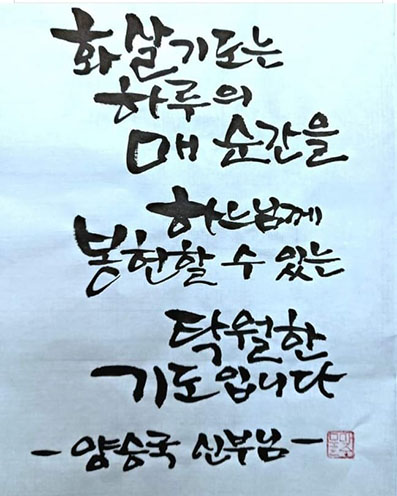 화살기도는
하루의
매 순간을
하느님께
봉헌할 수 있는
탁월한
기도입니다
- 양승국 신부님 -